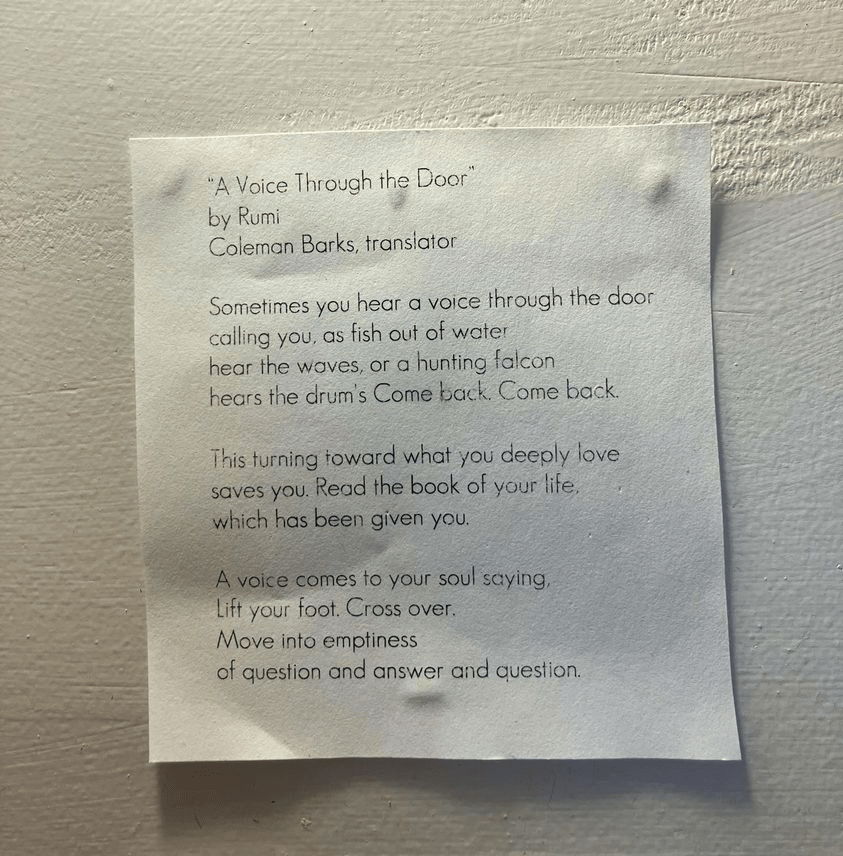 "A Voice Through the Door"
by Rumi
Coleman Barks, translator
Sometimes you hear a voice through the door
calling you, as fish out of water
hear the waves, or a hunting falcon
hears the drum's Come back. Come back.
This turning toward what you deeply love
saves you. Read the book of your life,
which has been given you.
A voice comes to your soul saying,
Lift your foot. Cross over.
Move into emptiness
of question and answer and question.